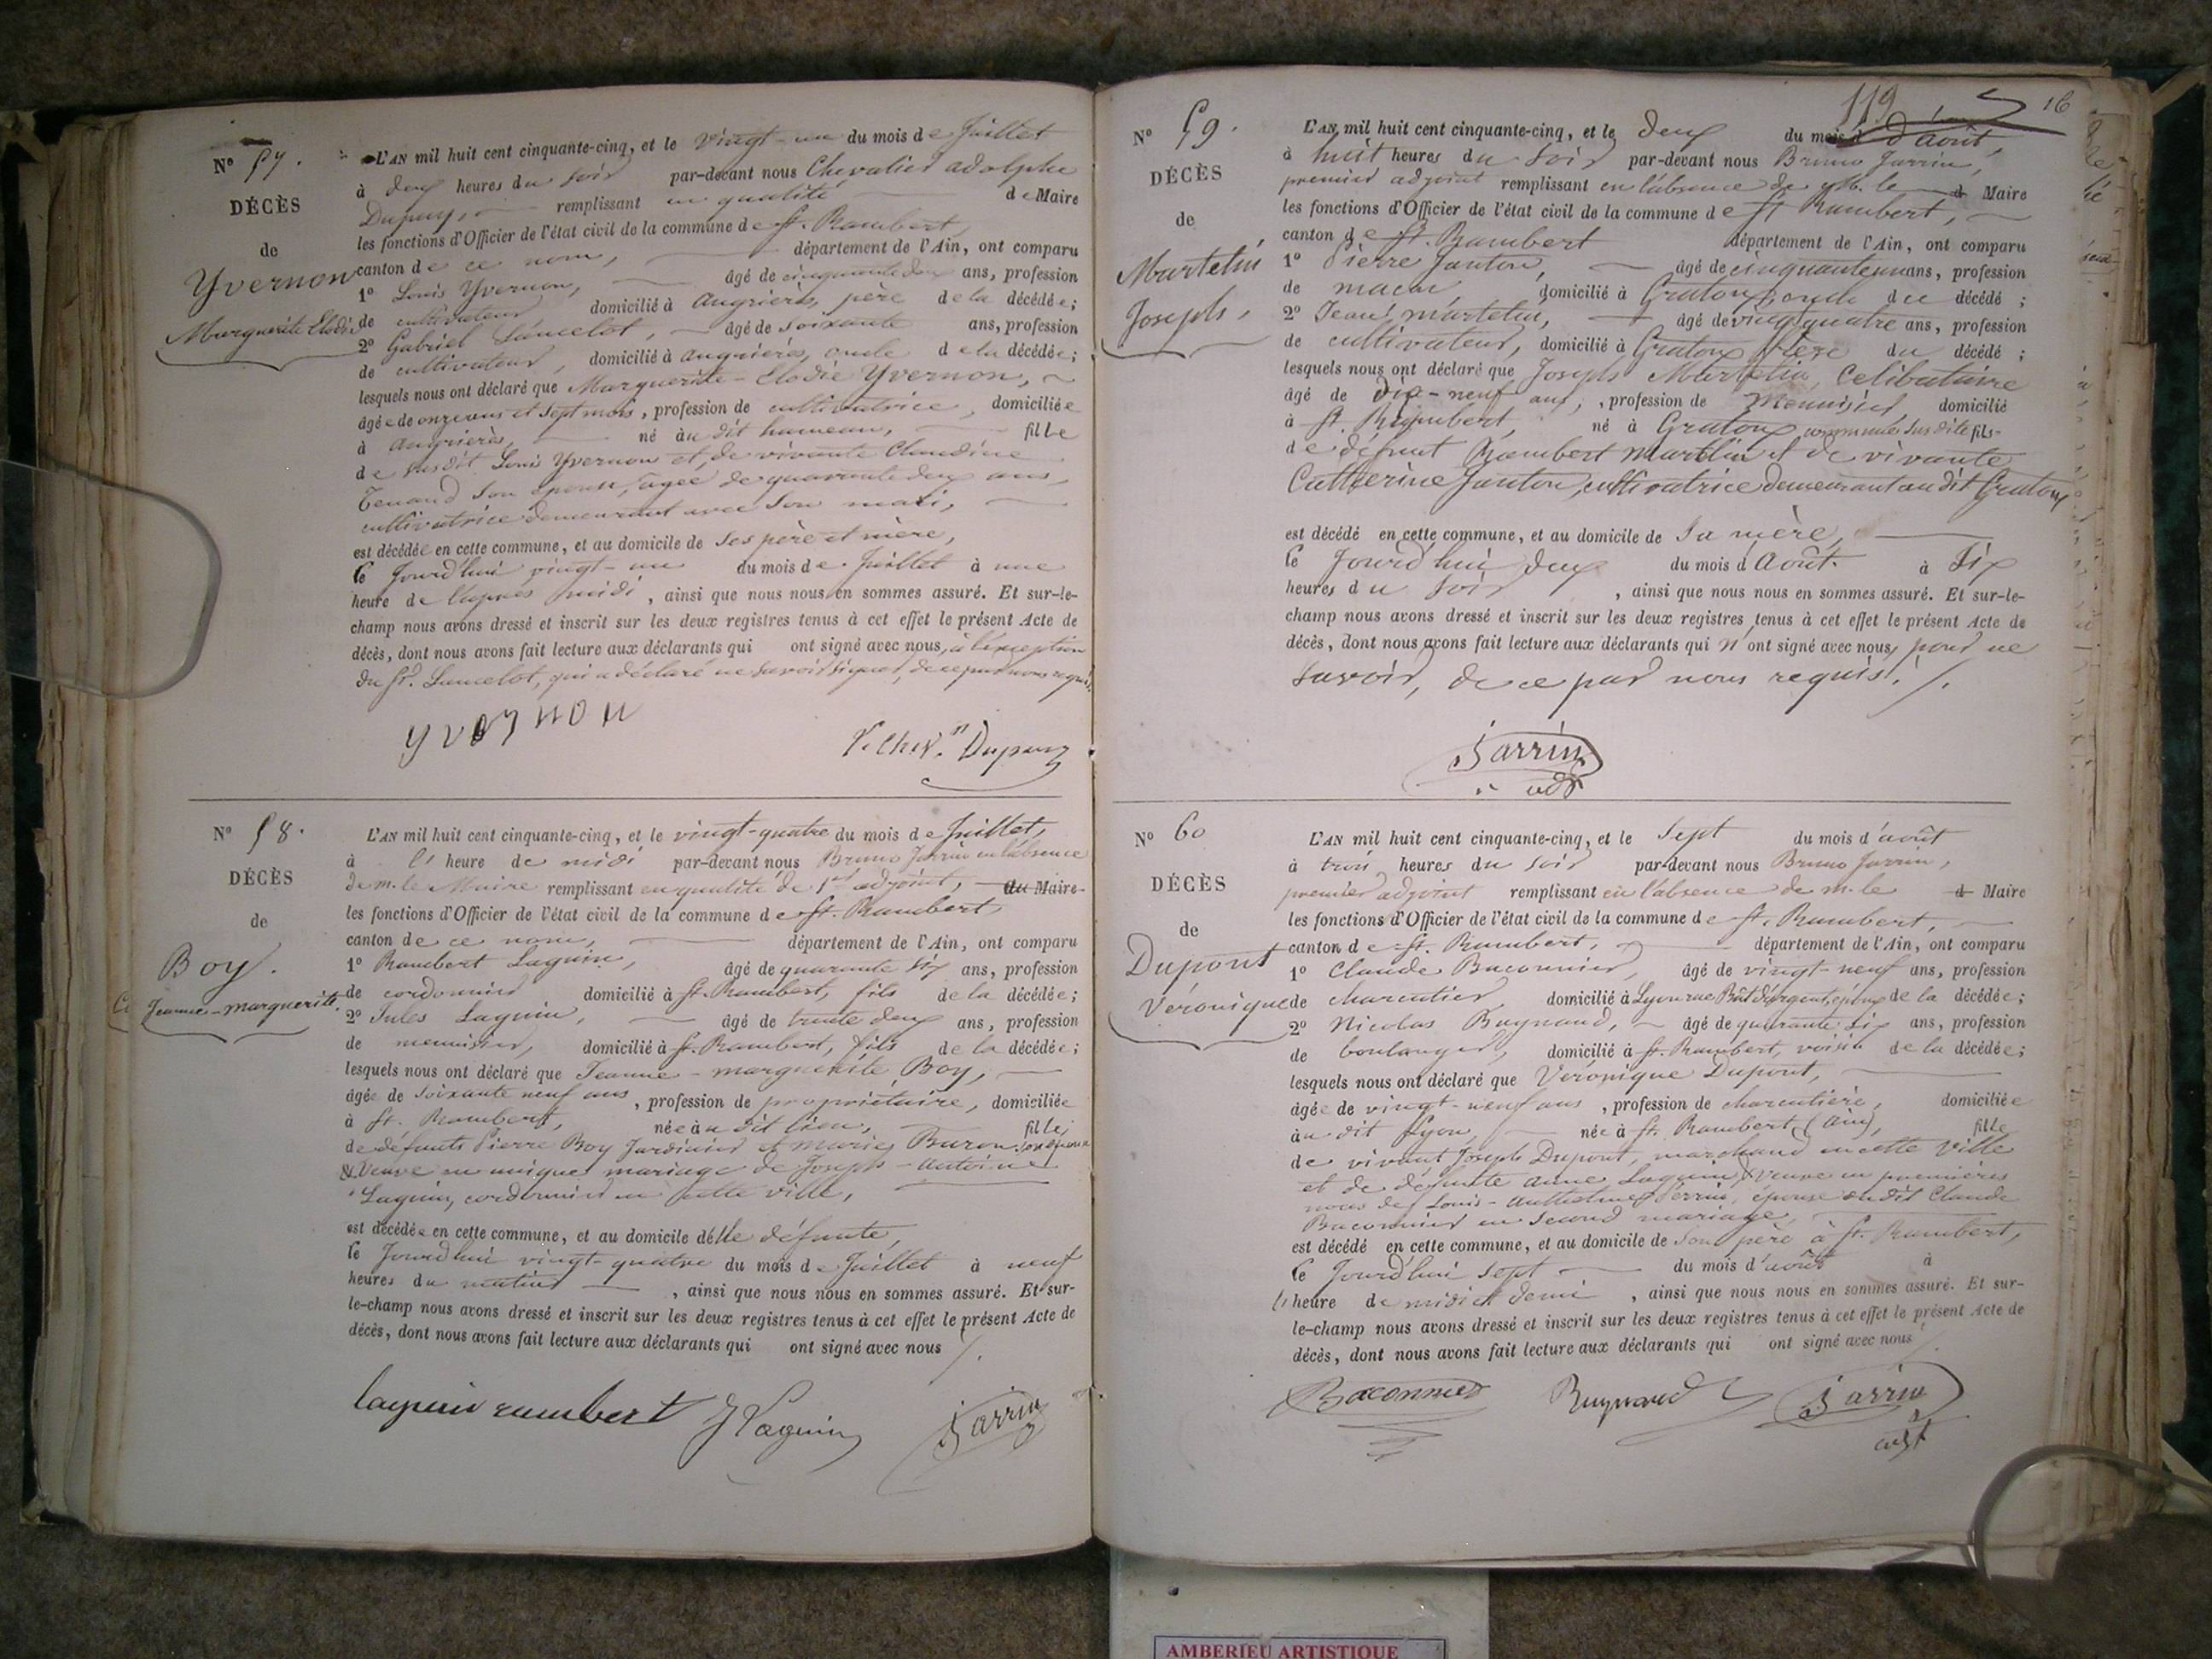 N° 57.
DÉCÈS
de
Yvernon
Marguerite Elodie
L'AN mil huit cent cinquante-cinq, et le vingt-un du mois de Juillet
à deux heures du soir par-devant nous Chevalier adolphe
Dupuy, remplissant en qualité de Maire
les fonctions d'Officier de l'état civil de la commune de St. Rambert,
canton de ce nom, département de l'Ain, ont comparu
1° Louis Yvernon, âgé de cinquante deux ans, profession
de cultivateur, domicilié à Angrières, père de la décédée;
2° Gabriel Lancelot, âgé de soixante ans, profession
de cultivateur, domicilié à angrières, oncle de la décédée;
lesquels nous ont déclaré que Marguerite-Elodie Yvernon,
âgée de onze ans et sept mois, profession de cultivatrice, domiciliée
à angrières, né au dit hameau, fille
de susdit Louis Yvernon et de vivante Claudine
Tenand son épouse, agée de quarante deux ans,
cultivatrice demeurant avec son mari,
est décédée en cette commune, et au domicile de ses père et mère,
le Jourd'hui vingt-un du mois de Juillet à une
heure de l'après midi, ainsi que nous nous en sommes assuré. Et sur-le-
champ nous avons dressé et inscrit sur les deux registres tenus à cet effet le présent Acte de
décès, dont nous avons fait lecture aux déclarants qui ont signé avec nous, à l'exception
du Sr. Lancelot, qui a déclaré ne savoir signer, de ce par nous requis.
yvernon
Dupuy
N° 58.
DÉCÈS
de
Boy.
Jeanne-marguerite.
L'AN mil huit cent cinquante-cinq, et le vingt-quatre du mois de Juillet,
à l' heure de midi par-devant nous Bruno Jarrin en l'absence
de m. le Maire remplissant en qualité de 1er adjoint, du Maire
les fonctions d'Officier de l'état civil de la commune de St. Rambert,
canton de ce nom, département de l'Ain, ont comparu
1° Rambert Laguin, âgé de quarante six ans, profession
de cordonnier domicilié à St. Rambert, fils de la décédée;
2° Jules Laguin, âgé de trente deux ans, profession
de menuisier, domicilié à St. Rambert, fils de la décédée;
lesquels nous ont déclaré que Jeanne-marguerite Boy,
âgée de soixante neuf ans, profession de propriétaire, domiciliée
à St. Rambert, née au dit lieu, fille
de défunts Pierre Boy Jardinier et Marie Buron son épouse
& Veuve en unique mariage de Joseph-antoine
Laguin, cordonnier en cette ville,
est décédée en cette commune, et au domicile d'elle défunte,
le Jourd'hui vingt-quatre du mois de Juillet à neuf
heures du matin, ainsi que nous nous en sommes assuré. Et sur-
le-champ nous avons dressé et inscrit sur les deux registres tenus à cet effet le présent Acte de
décès, dont nous avons fait lecture aux déclarants qui ont signé avec nous
laguin rambert J Laguin Jarrin
119 16
N° 59.
DÉCÈS
de
Martelin
Joseph,
L'AN mil huit cent cinquante-cinq, et le deux du mois d'août,
à huit heures du soir par-devant nous Bruno Jarrin,
premier adjoint remplissant en l'absence de M. le d Maire
les fonctions d'Officier de l'état civil de la commune de St Rambert,
canton de St. Rambert département de l'Ain, ont comparu
1° Pierre Janton, âgé de cinquante un ans, profession
de maçon, domicilié à Gratoux, oncle du décédé;
2° Jean martelin, âgé de vingt quatre ans, profession
de cultivateur, domicilié à Gratoux frère du décédé;
lesquels nous ont déclaré que Joseph Martelin, Célibataire
âgé de dix-neuf ans, profession de Menuisier, domicilié
à St. Rambert, né à Gratoux commune susdite fils
de défunt Rambert Martelin et de vivante
Catherine Janton, cultivatrice demeurant au dit Gratoux
est décédé en cette commune, et au domicile de Sa mère,
le Jourd'hui deux du mois d'Août à Six
heures du soir, ainsi que nous nous en sommes assuré. Et sur-le-
champ nous avons dressé et inscrit sur les deux registres tenus à cet effet le présent Acte de
décès, dont nous avons fait lecture aux déclarants qui n'ont signé avec nous, pour ne
savoir, de ce par nous requis.
Jarrin
adj
N° 60
DÉCÈS
de
Dupont
Véronique
L'AN mil huit cent cinquante-cinq, et le Sept du mois d'août
à trois heures du soir par-devant nous Bruno Jarrin,
premier adjoint remplissant en l'absence de m. le d Maire
les fonctions d'Officier de l'état civil de la commune de St. Rambert,
canton de St. Rambert, département de l'Ain, ont comparu
1° Claude Baconnier, âgé de vingt-neuf ans, profession
de charcutier, domicilié à Lyon rue Bât d'argent, époux de la décédée;
2° Nicolas Buynand, âgé de quarante six ans, profession
de boulanger, domicilié à St. Rambert, voisin de la décédée;
lesquels nous ont déclaré que Véronique Dupont,
âgée de vingt-neuf ans, profession de charcutière, domiciliée
au dit Lyon, née à St. Rambert (Ain), fille
de vivant Joseph Dupont, marchand en cette Ville
et de défunte anne Laguin, & Veuve en premières
noces de Louis-anthelme Perrin, épouse du dit Claude
Baconnier en second mariage,
est décédé en cette commune, et au domicile de Son père à St. Rambert,
le Jourd'hui sept du mois d'août à
l' heure de midi et demi, ainsi que nous nous en sommes assuré. Et sur-
le-champ nous avons dressé et inscrit sur les deux registres tenus à cet effet le présent Acte de
décès, dont nous avons fait lecture aux déclarants qui ont signé avec nous
Baconnier Buynand Jarrin
adjt
AMBERIEU ARTISTIQUE